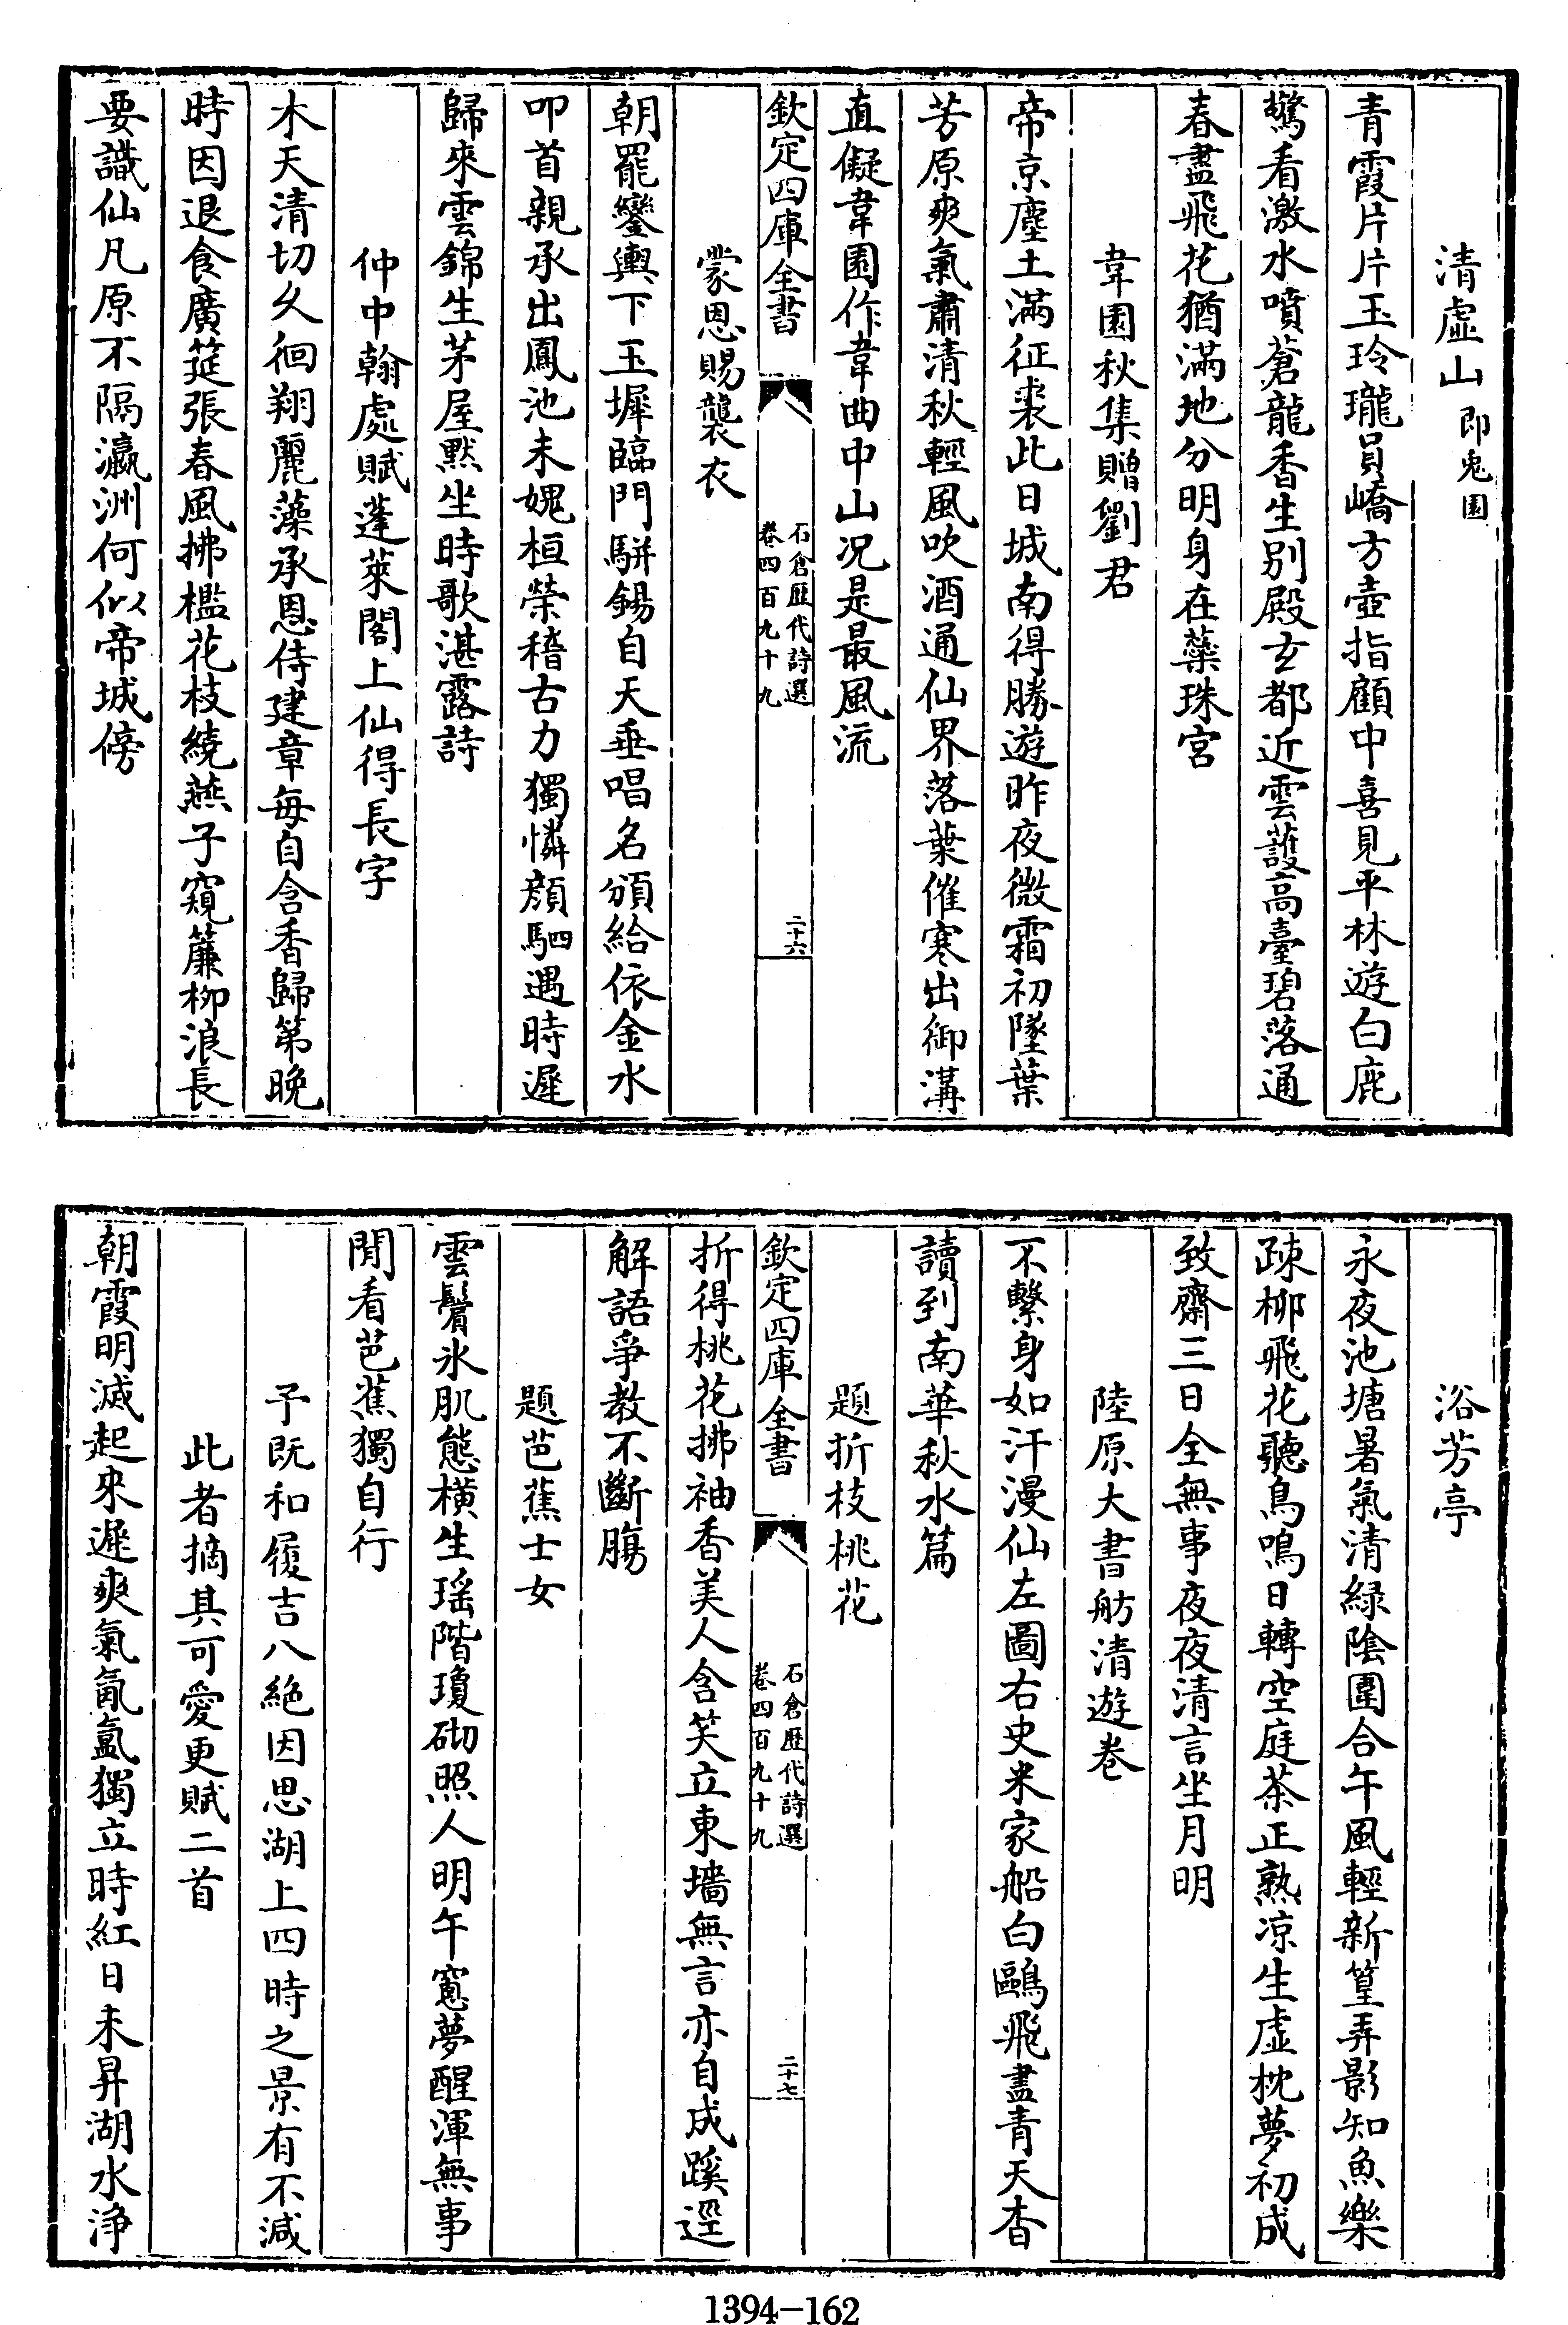 清虛山即兎園
青霞片片玉玲瓏員嶠方壺指顧中喜見平林遊白鹿
驚看激水噴蒼龍香生别殿玄都近雲護高臺碧落通
春盡飛花猶滿地分明身在蘂珠宫
韋園秋集贈劉君
帝京塵土滿征裘此日城南得勝遊昨夜微霜初墜葉
芳原爽氣肅清秋輕風吹酒通仙界落葉催寒出御溝
直儗韋園作韋曲中山况是最風流
欽定四庫全書
石倉歴代詩選
卷四百九十九
二十六
蒙恩賜襲衣
朝罷鑾輿下玉墀臨門駢錫自天垂唱名頒給依金水
叩首親承出鳳池未媿桓榮稽古力獨憐顔駟遇時遲
歸來雲錦生茅屋黙坐時歌湛露詩
仲中翰處賦蓬萊閣上仙得長字
木天清切久徊翔麗藻承恩侍建章每自含香歸第晚
時因退食廣筵張春風拂檻花枝繞燕子窺簾柳浪長
要識仙凡原不隔瀛洲何似帝城傍
浴芳亭
永夜池塘暑氣清緑陰圍合午風輕新篁弄影知魚樂
疎柳飛花聽鳥鳴日轉空庭茶正熟凉生虚枕夢初成
致齋三日全無事夜夜清言坐月明
陸原大書舫清遊卷
不繫身如汗漫仙左圖右史米家船白鷗飛盡青天杳
讀到南華秋水篇
題折枝桃花
欽定四庫全書
石倉歴代詩選
卷四百九十九
二十七
折得桃花拂袖香美人含笑立東墻無言亦自成蹊逕
解語爭教不斷膓
題芭蕉士女
雲鬢氷肌態横生瑶階瓊砌照人明午窻夢醒渾無事
閒看芭蕉獨自行
予既和履吉八絶因思湖上四時之景有不減
此者摘其可愛更賦二首
朝霞明滅起來遲爽氣氤氲獨立時紅日未昇湖水浄
1394-162